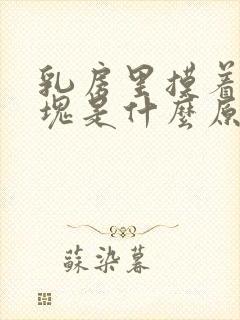 乳房里摸着
塊是什麼原
蘇染暮